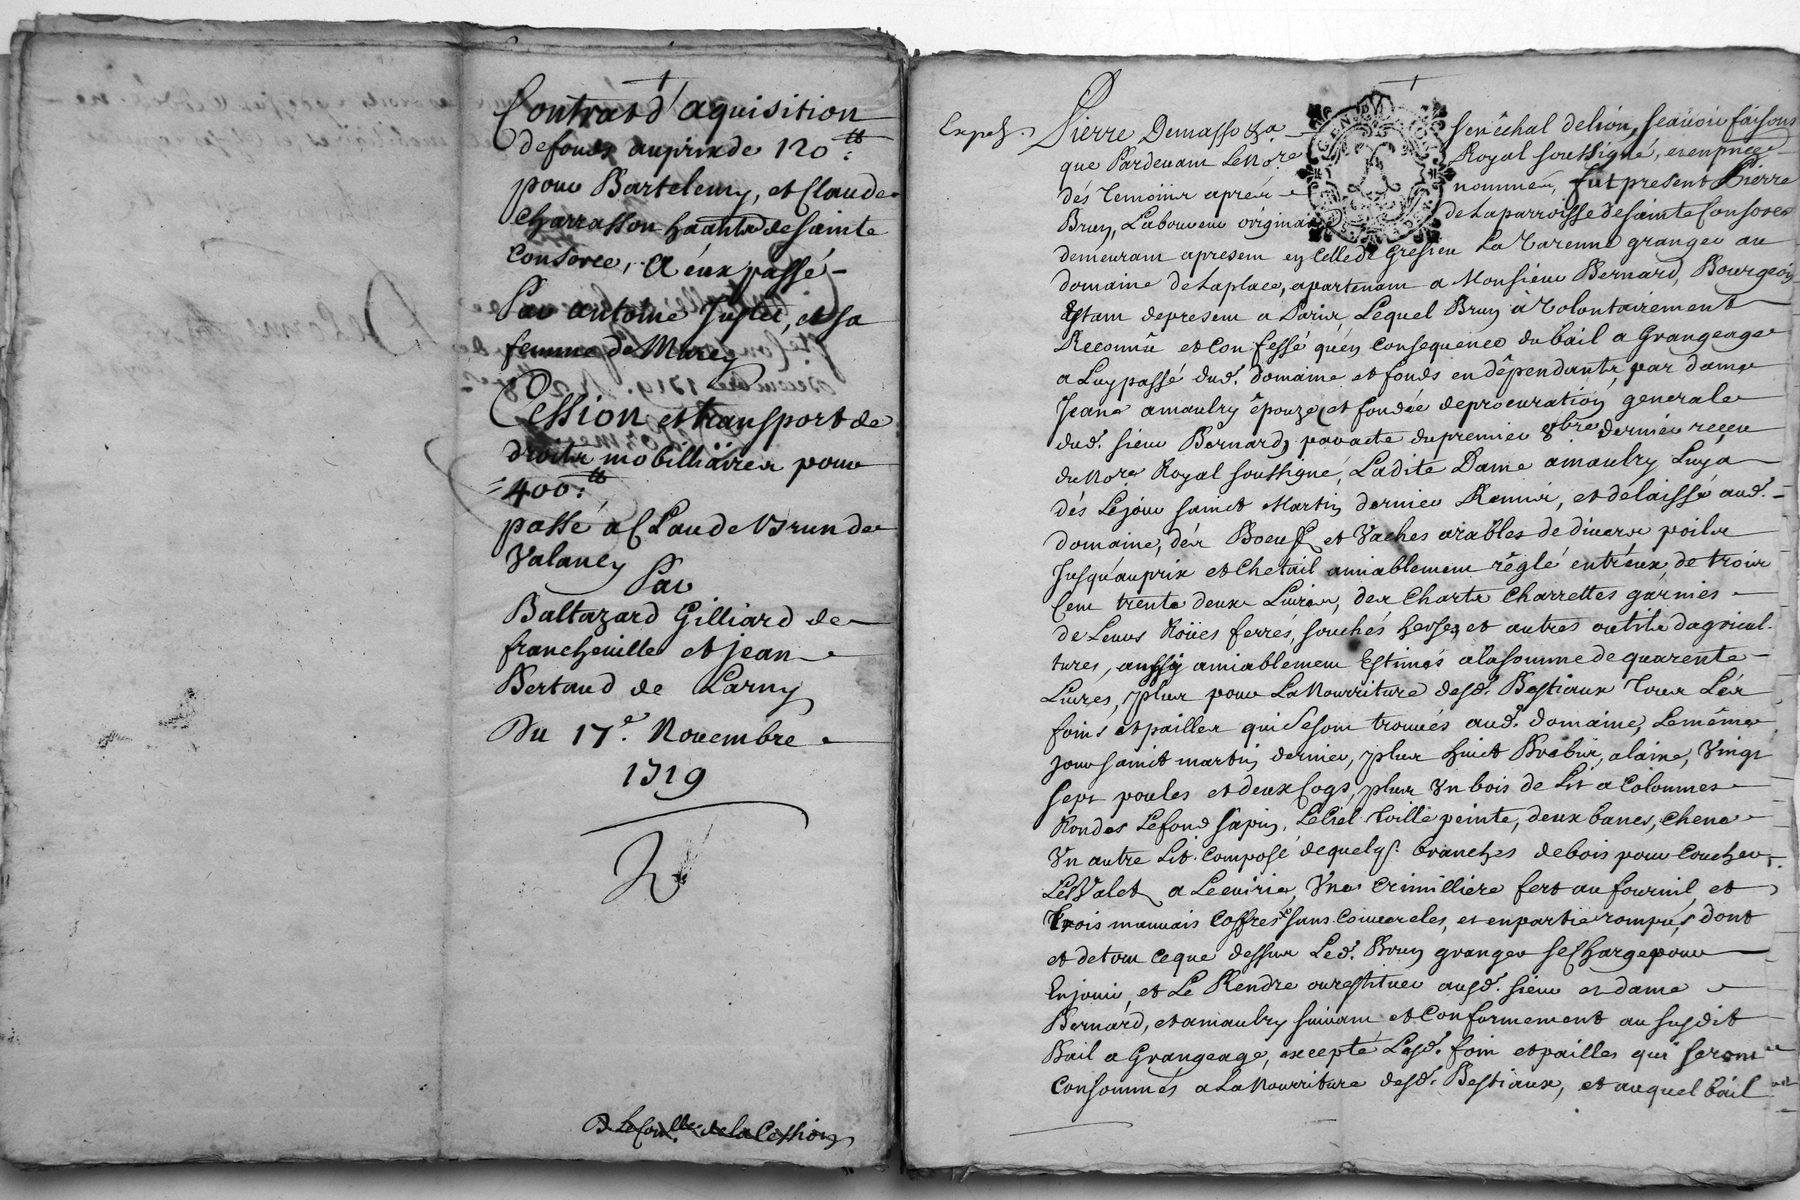 Contrat d'aquisition
de fonds au prix de 120 tt
pour Bartelemy, et Claude
Charrasson haants de Sainte
Consorce, A eux passé
Par antoine Juttet, et sa
femme de Marcy
Cession et transport de
droits mobilliaires pour
400 tt
passé a Claude Brun de
Valancy
Par
Baltazard Gilliard de
francheville et jean
Bertaud de Larny
Du 17e Novembre
1719
de la Cession
Exped.
Pierre Demasso &a Senéchal de lion, sçavoir faisons
que Pardevant Le No.re Royal soussigné, et en pnce
dés temoins aprés nommés, fut present Pierre
Brun, Laboureur originaire de la parroisse de sainte Consorce
demeurant apresent en Celle de Gresieu La Varenne granger au
domaine de Laplace, apartenant a Monsieur Bernard, Bourgeois
Estant de present a Paris, Lequel Brun a Volontairement
Reconnû et Confessé qu'en Consequence du bail a Grangeage
a Luy passé dud. domaine et fonds en dêpendants, par dame
Jeane amaulry êpouze et fondée de procuration generale
dud. sieur Bernard, par acte du premier 8bre dernier reçeu
du No.re Royal soussigné, Ladite Dame amaulry Luy a
dés Le jour sainct Martin dernier Remis, et délaissé aud.
domaine, dés Boeufs et Vaches arables de divers poils
Jusqu'au prix et Chetail amiablement réglé entr'eux, de trois
Cent trente deux Livres, des Charts Charrettes garnies
de Leurs Roües ferrés, souchés herses et autres outils dagricul-
tures, aussy amiablement Estimés a la somme de quarente
Livres, plus pour La Nourriture desd. Bestiaux tous Lés
foins et pailles qui se sont trouvés aud. domaine, Le même
jour sainct martin dernier, plus huict Brebis, a laine, Vingt
sept poules et deux Cogs, plus Un bois de Lit a Colonnes
Rondes Le fond sapin, Le Ciel toille peinte, deux bancs, chene
Un autre Lit Composé de quelqs. branches de bois pour Coucher
Les Valets a Leeuirie, Une Crimilliere fert au fournil, et
trois mauvais Coffres sans Couvercles, et en partie rompus, dont
et de tout ce que dessus Led. Brun granger se Charge pour
En jouir, et Le Rendre ou restituer ausd. sieur et dame
Bernard, et amaulry suivant et Conformement au susdit
Bail a Grangeage, excepté Lesd. foin et pailles qui seront
Consommés a La Nourriture desd. Bestiaux, et auquel bail